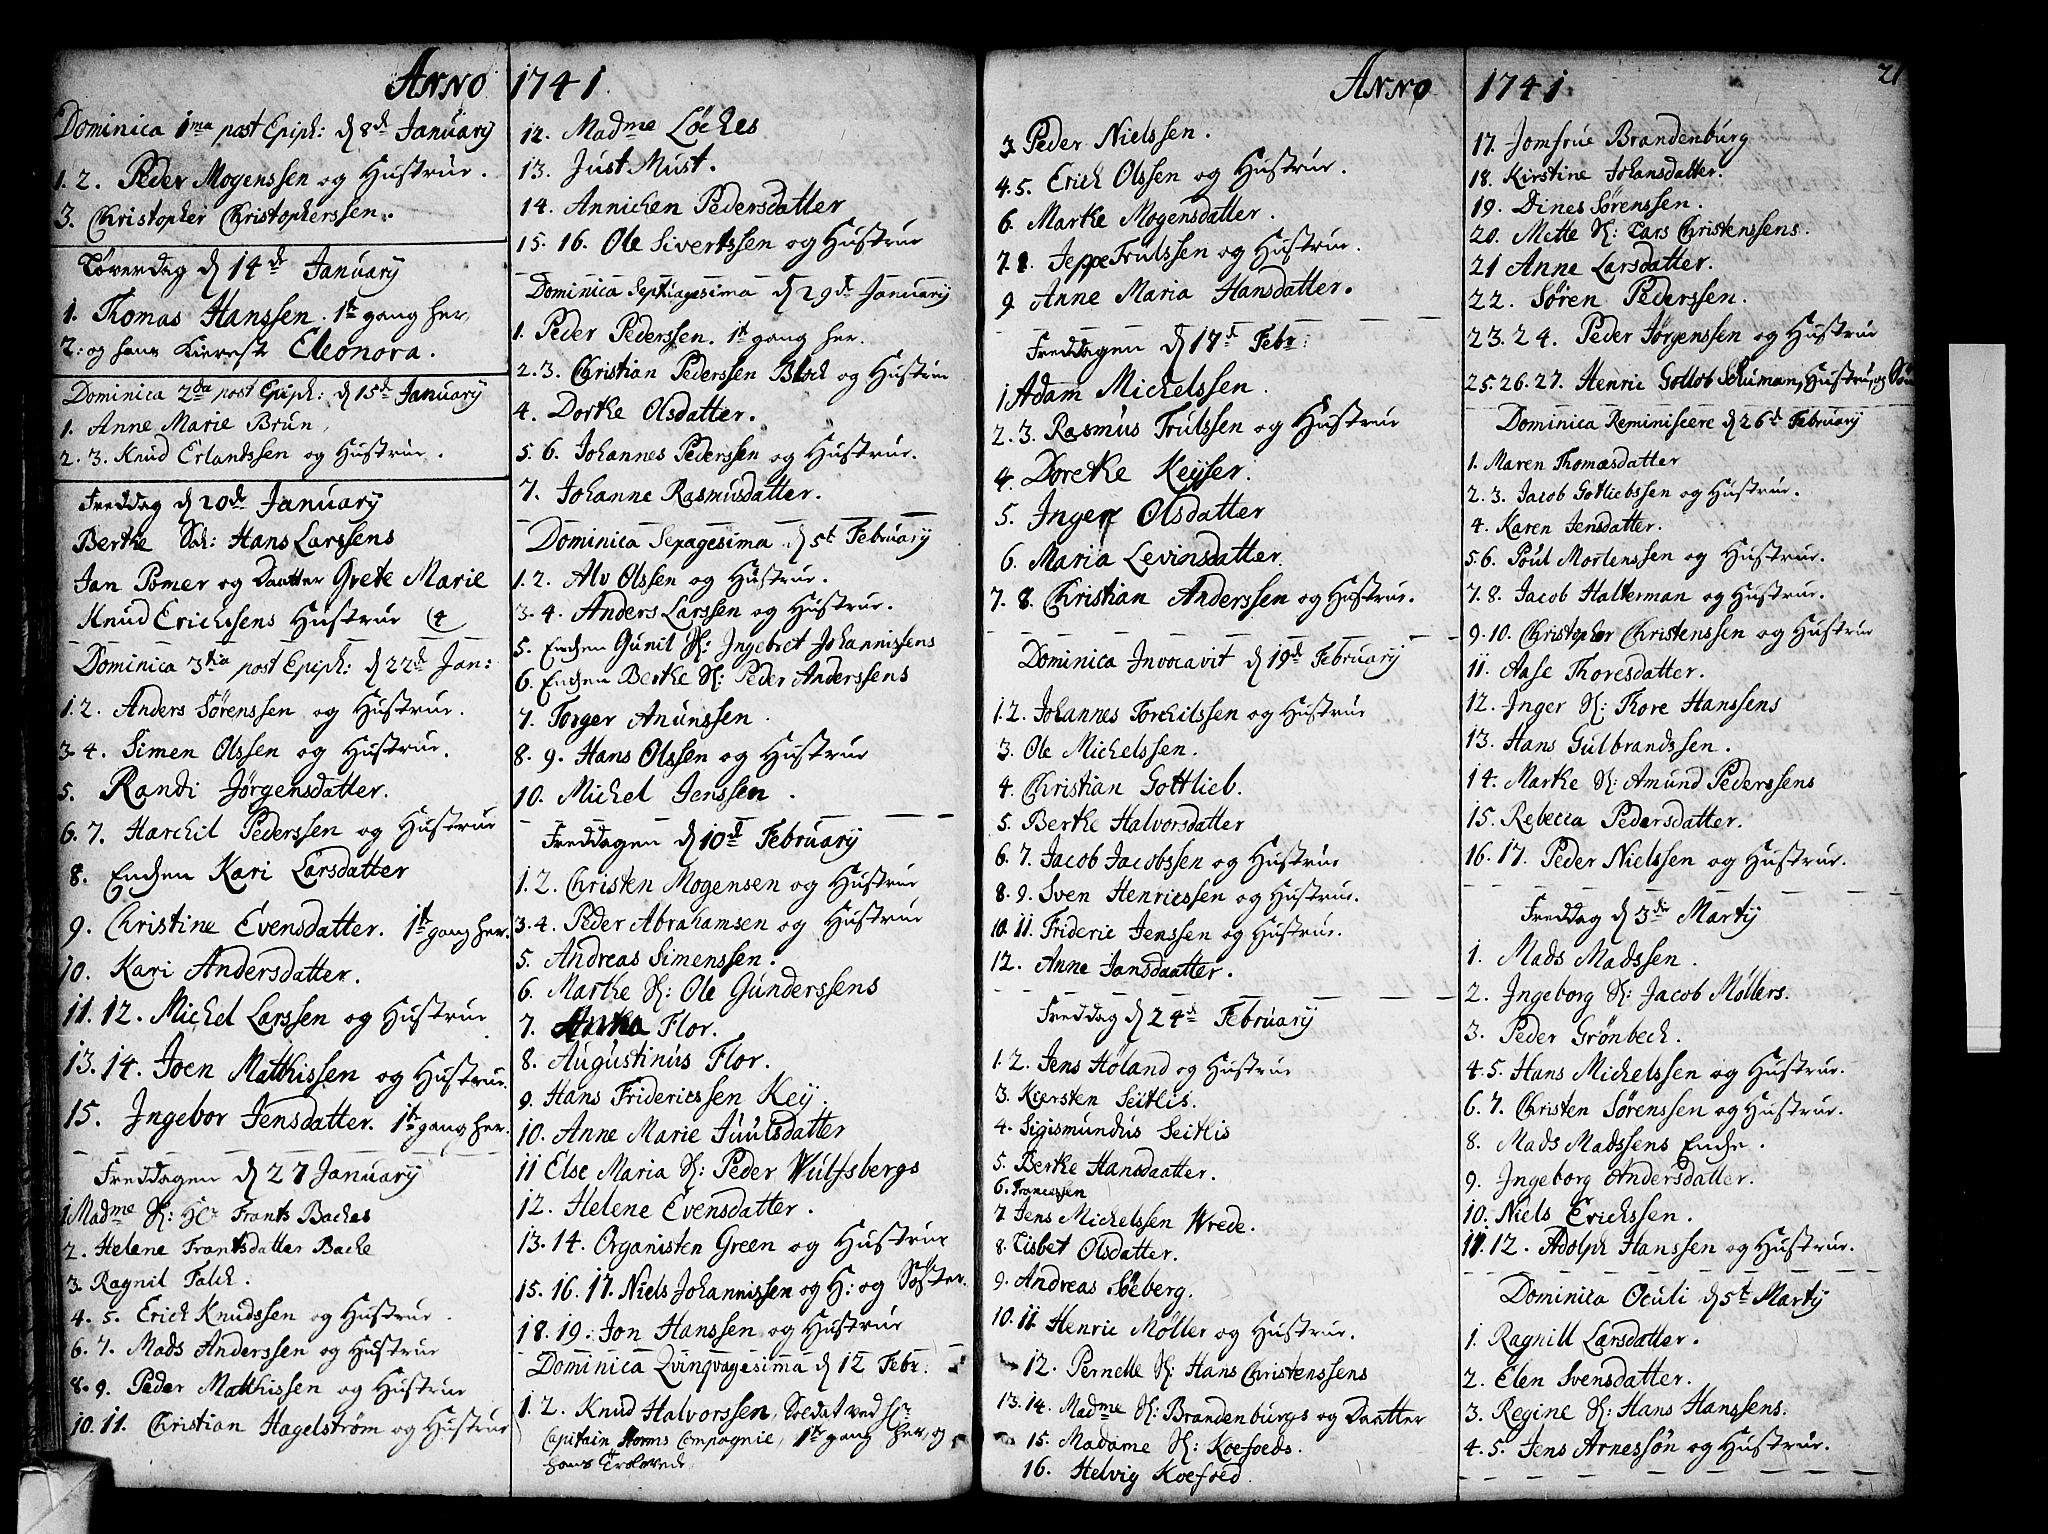 Anno 1741.
Dominica 1ma post Epiph: d 8de January
1. 2. Peder Mogenssen og Hustrue.
3. Christopher Christopherssen.
Løverdag d 14de January
1. Thomas Hanssen. 1te gang her,
2. og hans Kiereste Eleonora.
Dominica 2da post Epiph: d 15de January
1. Anne Marie Brun,
2. 3. Knud Erlandssen og Hustrue.
Freddag d 20de January
Berthe Sal: Hans Larssens
Jan Pomer og Daatter Grete Marie
Knud Erichsens Hustrue (4
Dominica 3tia post Epiph: d 22de Jan:
1. 2. Anders Sørenssen og Hustrue.
3. 4. Simen Olssen og Hustrue.
5. Randi Jørgensdatter.
6. 7. Harchil Pederssen og Hustrue
8. Enchen Kari Larsdatter
9. Christine Evensdatter. 1te gang her.
10. Kari Andersdatter.
11. 12. Michel Larssen og Hustrue
13. 14. Joen Matthissen og Hustrue.
15. Ingebor Jensdatter. 1te gang her.
Freddagen d 27 January
1. Madme S: Hr Frants Baches
2. Helene Frantsdatter Bache
3. Ragnil Falch.
4. 5. Erich Knudssen og Hustrue.
6. 7. Mads Anderssen og Hustrue
8. 9. Peder Matthissen og Hustrue
10. 11. Christian Hagelstrøm og Hustrue
12. Madme Løches
13. Just Must.
14. Annichen Pedersdatter
15. 16. Ole Sivertssen og Hustrue
Dominica Septuagesima d 29de January
1. Peder Pederssen. 1te gang her.
2. 3. Christian Pederssen Bloch og Hustrue
4. Dorthe Olsdatter.
5. 6. Johannes Pederssen og Hustrue.
7. Johanne Rasmusdatter.
Dominica Sexagesima d 5te February
1. 2. Alv Olssen og Hustrue.
3. 4. Anders Larssen og Hustrue.
5. Enchen Gunil S: Ingebret Johannissens
6. Enchen Berthe S: Peder Anderssens
7. Torger Anunssen.
8. 9. Hans Olssen og Hustrue
10. Michel Jenssen.
Freddagen d 10de February
1. 2. Christen Mogensen og Hustrue
3. 4. Peder Abrahamsen og Hustrue
5. Andreas Simenssen.
6. Marthe S: Ole Gunderssens
7. Anna Flor.
8. Augustinus Flor.
9. Hans Fridericssen Key.
10. Anne Marie Juulsdatter
11 Else Maria S: Peder Wulfsbergs
12. Helene Evensdatter.
13. 14. Organisten Green og Hustrue
15. 16. 17. Niels Johannissen og H: og Søster.
18. 19. Jon Hanssen og Hustrue
Dominica Qvinqvagesima d 12 Febr:
1. 2. Knud Halvorssen, Soldat ved Hr
Capitain Horns Compagnie, 1te gang her, og
hans Trolovede
Anno 1741. 21
3 Peder Nielssen.
4. 5. Erich Olssen og Hustrue.
6. Marthe Mogensdatter.
7. 8. Jeppe Trulssen og Hustrue.
9. Anne Maria Hansdatter.
Freddagen d 17de Febr:
1 Adam Michelssen.
2. 3. Rasmus Trulssen og Hustrue
4. Dorethe Keyser.
5. Inger Olsdatter
6. Maria Levinsdatter.
7. 8. Christian Anderssen og Hustrue.
Dominica Invocavit d 19de February
1. 2. Johannes Torchilssen og Hustrue
3. Ole Michelssen.
4. Christian Gottlieb.
5. Berthe Halvorsdatter
6. 7. Jacob Jacobssen og Hustrue
8. 9. Sven Henricssen og Hustrue.
10. 11. Frideric Jenssen og Hustrue.
12. Anne Jansdaatter.
Freddag d 24de February
1. 2. Jens Høland og Hustrue
3. Kiersten Seitlis.
4. Sigismundus Seitlis
5. Berthe Hansdaatter.
6.
7. Jens Michelssen Wrede.
8. Lisbet Olsdatter.
9. Andreas Søeberg.
10. 11. Henric Møller og Hustrue.
12. Pernelle S: Hans Christenssens
13. 14. Madme S: Brandenburgs og Daatter
15. Madame S: Koefoeds.
16. Helvig Koefoed.
17. Jomfrue Brandenburg
18. Kirstine Johansdatter.
19. Dines Sørenssen.
20. Mette S: Lars Christenssens.
21 Anne Larsdatter.
22. Søren Pederssen.
23. 24. Peder Jørgenssen og Hustrue
25. 26. 27. Henric Gotlob Schuman, Hustrue, og Søn
Dominica Reminiscere d 26de February
1. Maren Thomasdatter
2. 3. Jacob Gotliebssen og Hustrue.
4. Karen Jensdatter.
5. 6. Poul Mortenssen og Hustrue.
7. 8. Jacob Halterman og Hustrue.
9. 10. Christopher Christenssen og Hustrue
11. Aase Thoresdatter.
12. Inger S: Thore Hanssens
13. Hans Gulbrandssen.
14. Marthe S: Amund Pederssens
15. Rebecca Pedersdatter.
16. 17. Peder Nielssen og Hustrue.
Freddag d 3die Marty
1. Mads Madssen.
2. Ingeborg S: Jacob Møllers.
3. Peder Grønbech.
4. 5. Hans Michelssen og Hustrue.
6. 7. Christen Sørenssen og Hustrue.
8. Mads Madssens Enche.
9. Ingeborg Andersdatter.
10. Niels Erichssen.
11. 12. Adolph Hanssen og Hustrue.
Dominica Oculi d 5te Marty
1. Ragnill Larsdatter.
2. Elen Svensdatter.
3. Regine S: Hans Hanssens.
4. 5. Jens Arnessøn og Hustrue.